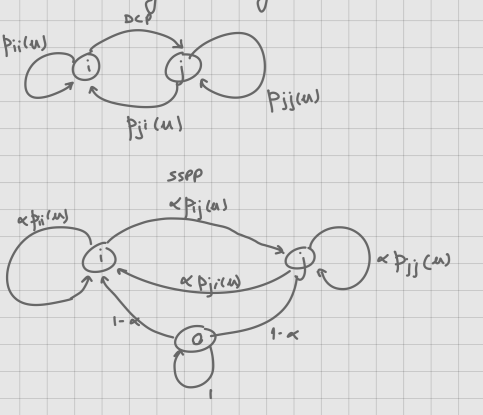 DCP
pii(u)
i
j
pjj(u)
pji(u)
SSPP
αpij(u)
αpii(u)
i
j
αpjj(u)
αpji(u)
1-α
1-α
0
1